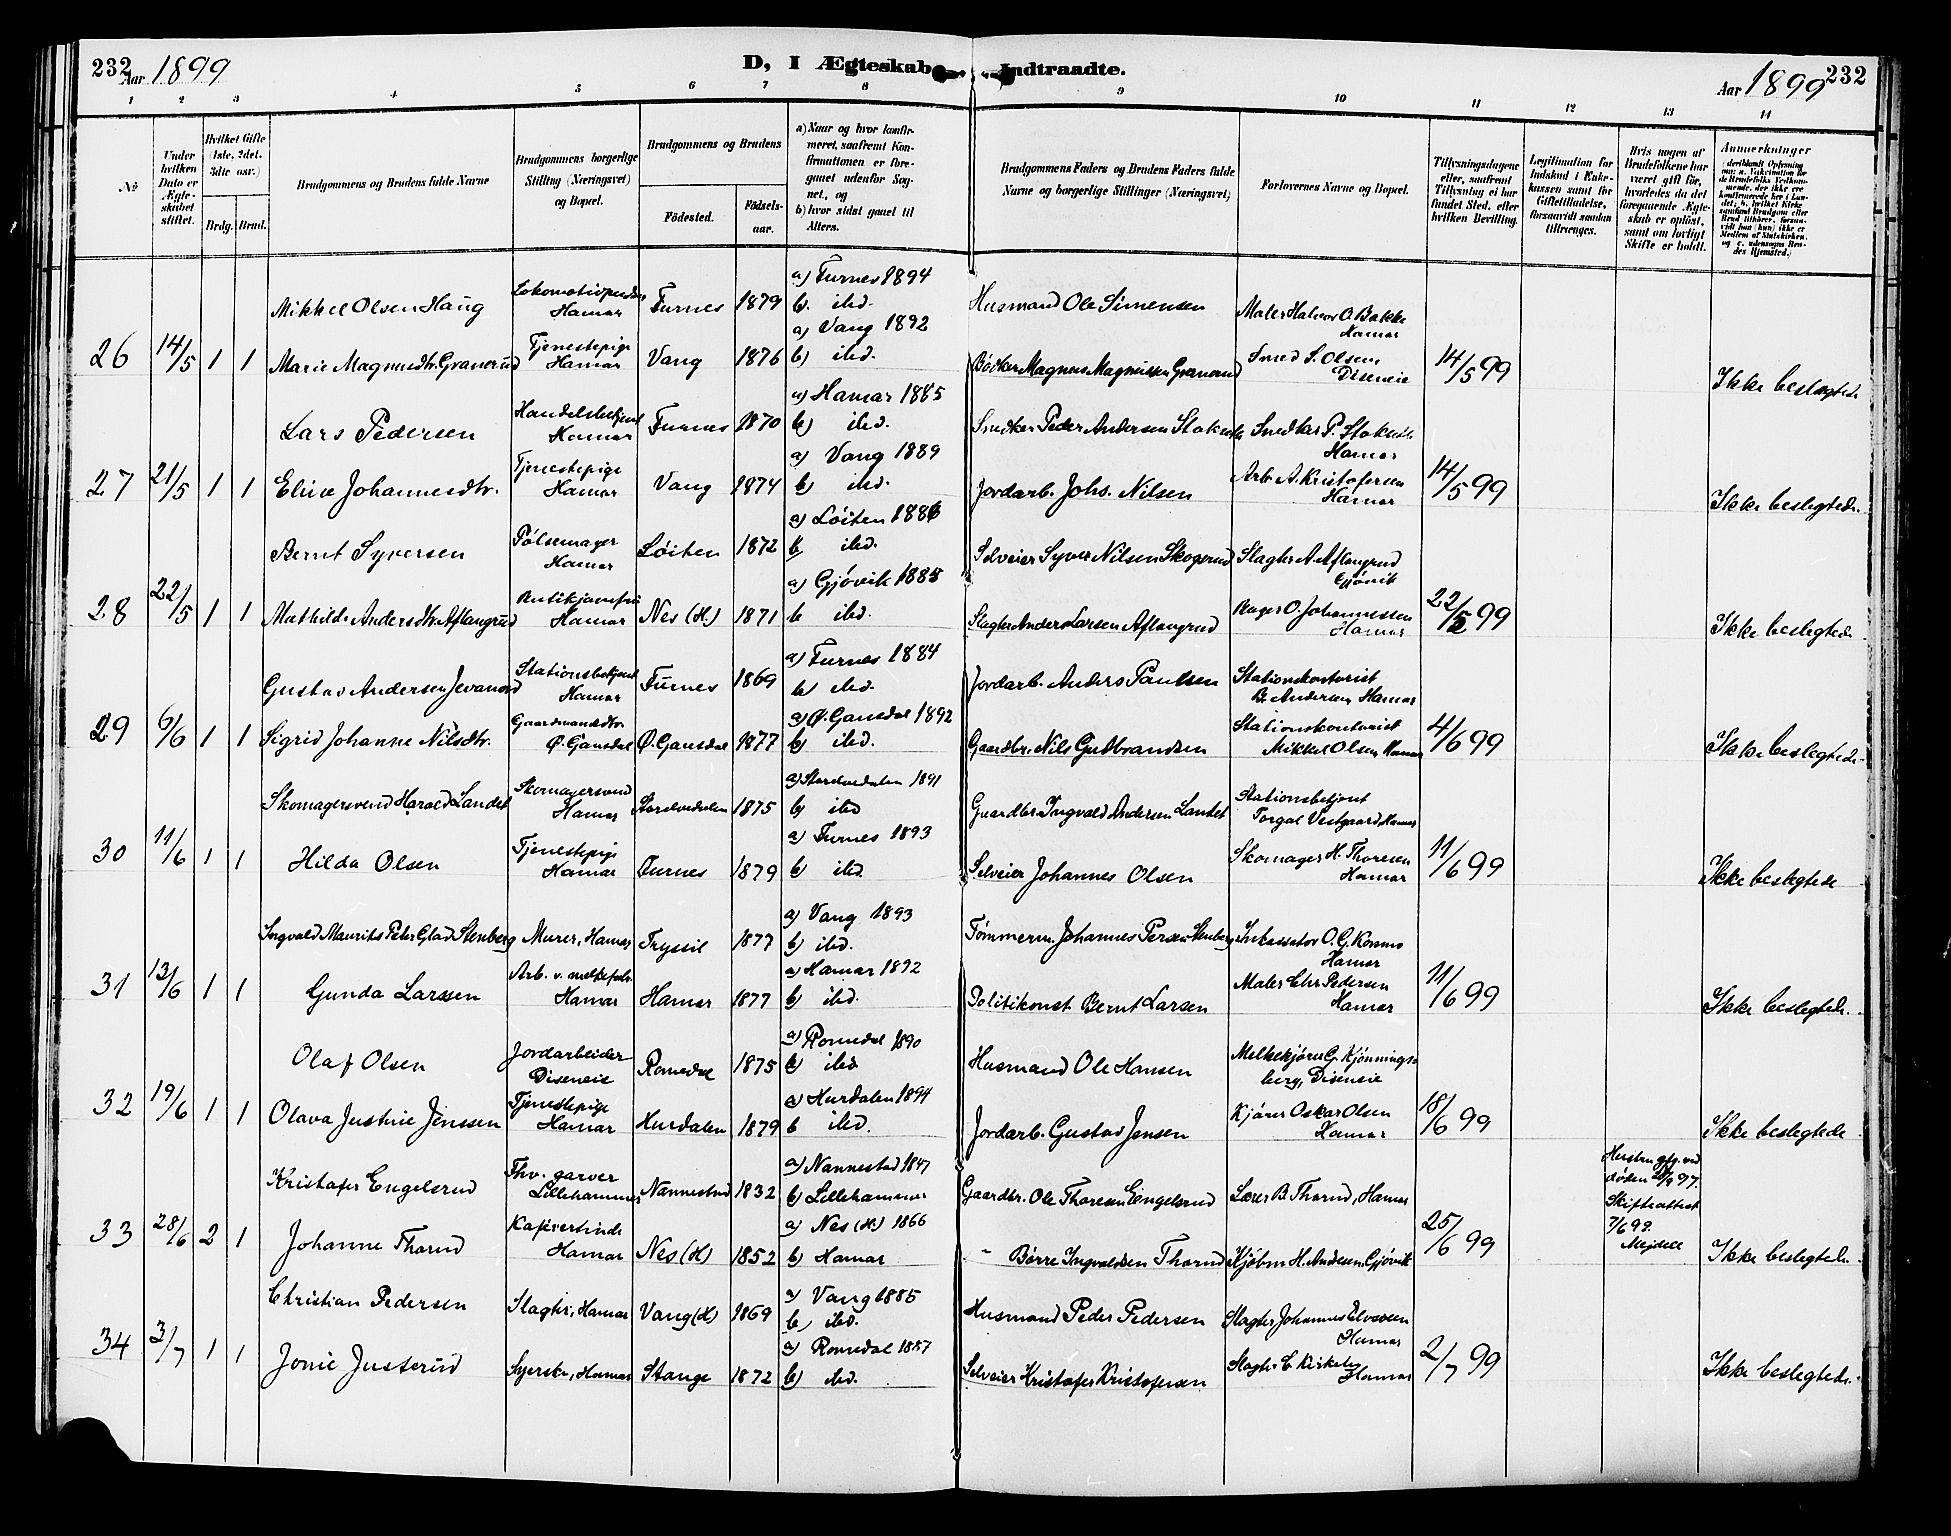 232 Aar 1899
D, I Ægteskab Indtraadte.
Aar 1899 232
1 2 3 4 5 6 7 8 9 10 11 12 13 14
№
Under hvilken Dato er Ægteskabet stiftet.
Hvilket Gifte (1ste, 2det, 3die osv.)
Brdg. Brud.
Brudgommens og Brudens fulde Navne
Brudgommens borgerlige Stilling (Næringsvei) og Bopæl.
Brudgommens og Brudens
Fødested.
Fødselsaar.
a) Naar og hvor konfirmeret, saafremt Konfirmationen er foregaaet udenfor Sognet, og
b) hvor sidst gaaet til Alters.
Brudgommens Faders og Brudens Faders fulde Navne og borgerlige Stillinger (Næringsvei)
Forlovernes Navne og Bopæl.
Tillysningsdagene eller, saafremt Tillysning ei har fundet Sted, efter hvilken Bevilling.
Legitimation for Indskud i Enkekassen samt for Giftetilladelse, forsaavidt saadan tiltrænges.
Hvis nogen af Brudefolkene har været gift før, hvorledes da det foregaaende Ægteskab er opløst, samt om lovligt Skifte er holdt.
Anmærkninger
Mikkel Olsen Haug Hamar Furnes 1879 a) Furnes 1894 b. ibd. Husmand Ole Simensen Maler Halvor O. Bakke Hamar
26 14/5 1 1 Marie Magnusdtr. Granerud Tjenestepige Hamar Vang 1876 a) Vang 1892 b) ibd. Bødker Magnus Magnussen Granerud Smed S. Olsen Diseneie 14/5 99 Ikke beslægtede
Lars Pedersen Handelsbetjent Hamar Furnes 1870 a) Hamar 1885 b) ibd. Snedker Peder Andersen Snedker P. Hamar
27 21/5 1 1 Elise Johannesdtr. Tjenestepige Hamar Vang 1874 a) Vang 1889 b) ibd. Jordarb. Johs. Nilsen Arb. A. Kristofersen Hamar 14/5 99 Ikke beslegtede.
Bernt Syversen Pølsemager Hamar Løiten 1872 a) Løiten 1886 b ibd. Selveier Syver Nilsen Skogerud Slagter A. Aflangrud Gjøvik
28 22/5 1 1 Mathilde Andersdtr. Aflangrud Hamar Nes (H.) 1871 a) Gjøvik 1885 b ibd. Slagter Anders Larsen Aflangrud Bager O. Johannessen Hamar 22/5 99 Ikke beslegtede
Gustav Andersen Jevanord Stationsbetjent Hamar Furnes 1869 a) Furnes 1884 b) ibd. Jordarb. Anders Paulsen Stationskontorist B. Andersen Hamar
29 6/6 1 1 Sigrid Johanne Nilsdtr. Gaardmandsdtr. Ø. Gausdal Ø. Gausdal 1877 a) Ø. Gausdal 1892 b) ibd. Gaardbr. Nils Gulbrandsen Stationskontorist Mikkel Olsen Hamar 4/6 99 Ikke beslegtede.
Skomagersvend Harald Landet Skomagersvend Hamar Størdalen 1875 1891 b) ibd Gaardbr. Ingvald Andersen Landet Stationsbetjent Torgal Vestgaard, Hamar
30 11/6 1 1 Hilda Olsen Tjenestepige Hamar Furnes 1879 a) Furnes 1893 b) ibd. Selveier Johannes Olsen Skomager H. Thoresen Hamar 11/6 99 Ikke beslegtede
Ingvald Maurits Peter Glad Stenberg Murer, Hamar Trysil 1877 a) Vang 1893 b) ibd. Tømmerm. Johannes Persen Stenberg Inkassator O. G. Hamar
31 13/6 1 1 Gunda Larssen Arb. v. melkefabr. Hamar Hamar 1877 a) Hamar 1892 b) ibd. Politikonst. Bernt Larsen Maler Chr. Pedersen Hamar 11/6 99 Ikke beslegtede.
Olaf Olsen Jordarbeider Diseneie Romedal 1875 a) Romedal 1890 b) ibd Husmand Ole Hansen Melkekjører G. Kjønningsberg, Diseneie
32 19/6 1 1 Olava Justine Jenssen Tjenestepige Hamar Hurdalen 1879 a) Hurdalen 1894 b ibd. Jordarb. Gustav Jensen Kjører Oskar Olsen Hamar 18/6 99 Ikke beslegtede
Kristofer Engelsrud Fhv. garver Lillehammer Nannestad 1832 a) Nannestad 1847 b) Lillehammer Gaardbr. Ole Thoresen Engelsrud Lærer B. Thorud, Hamar
33 28/6 2 1 Johanne Thorud Kafévertinde Hamar Nes (H) 1852 a) Nes (H.) 1866 b) Hamar - Børre Ingvaldsen Thorud Kjøbm. H. Andersen Gjøvik 25/6 99 Skifteattest 7/6 99. Mejdell Ikke beslegtede.
Christian Pedersen Slagter, Hamar Vang (H) 1869 a) Vang 1885 b) ibd. Husmand Peder Pedersen Slagter Johannes Hamar
34 3/7 1 1 Jonie Justerud Syerske, Hamar Stange 1872 a) Romedal 1887 b) ibd. Selveier Kristofer Kristofersen Slagter C. Kirkeby Hamar 2/7 99 Ikke beslegtede.